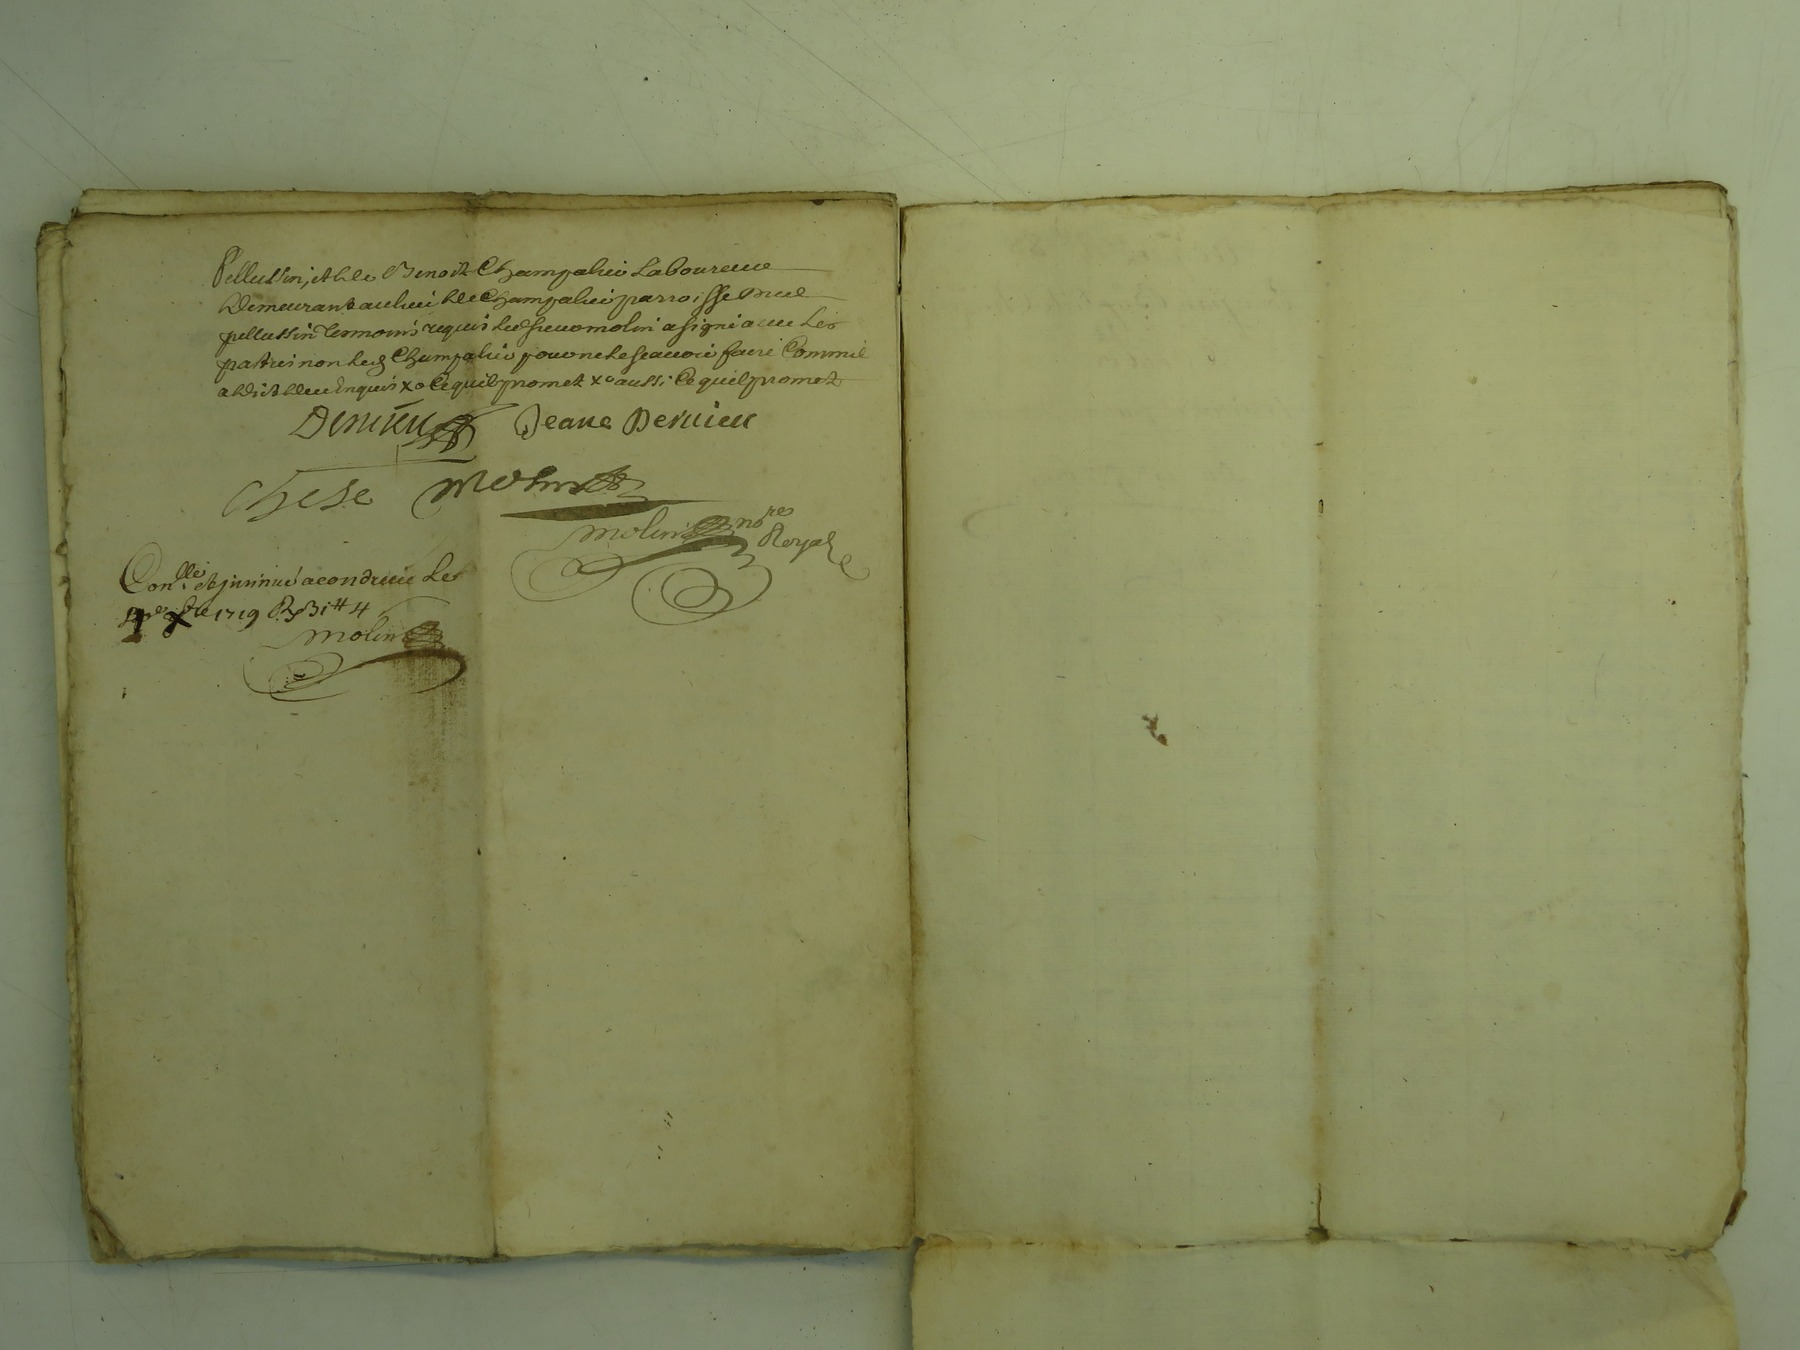 Pellussin, et de Benoit Champalier Laboureur
Demeurant au lieu de Champalier parroisse du d
pellussin Temoins requis led sieur molin a signé avec Les
parties non led Champalier pour ne le scavoir faire Comme
a dit de ce Enquis xo Ce quil promet xo aussi Ce quil promet
Dervieu Jeane Dervieu
Chese Molin
molin no.re Royal
Con.llé et jnsinué a condrieu Le
x.bre 1719 R. 31 # 4
molin